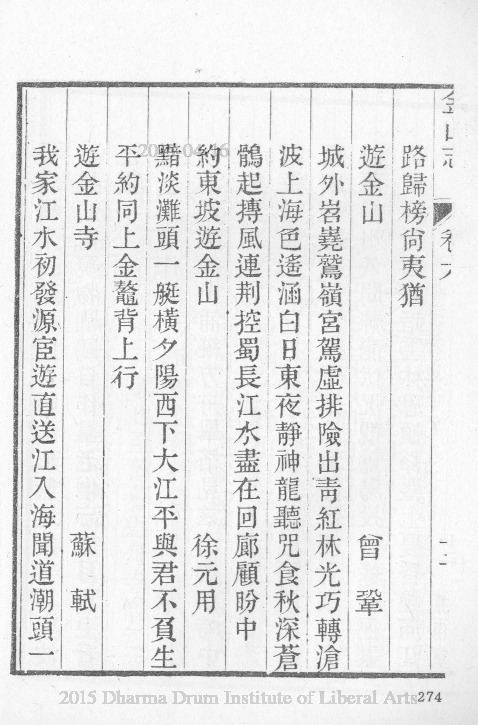 金山志 卷六
路歸榜尙夷猶
遊金山 曾鞏
城外岧嶤鷲嶺宮駕虛排險出靑紅林光巧轉滄
波上海色遙涵白日東夜靜神龍聽咒食秋深蒼
鶻起摶風連荆控蜀長江水盡在回廊顧盼中
約東坡遊金山 徐元用
黯淡灘頭一艇橫夕陽西下大江平與君不負生
平約同上金鼇背上行
遊金山寺 蘇軾
我家江水初發源宦遊直送江入海聞道潮頭一
2015 Dharma Drum Institute of Liberal Arts
274